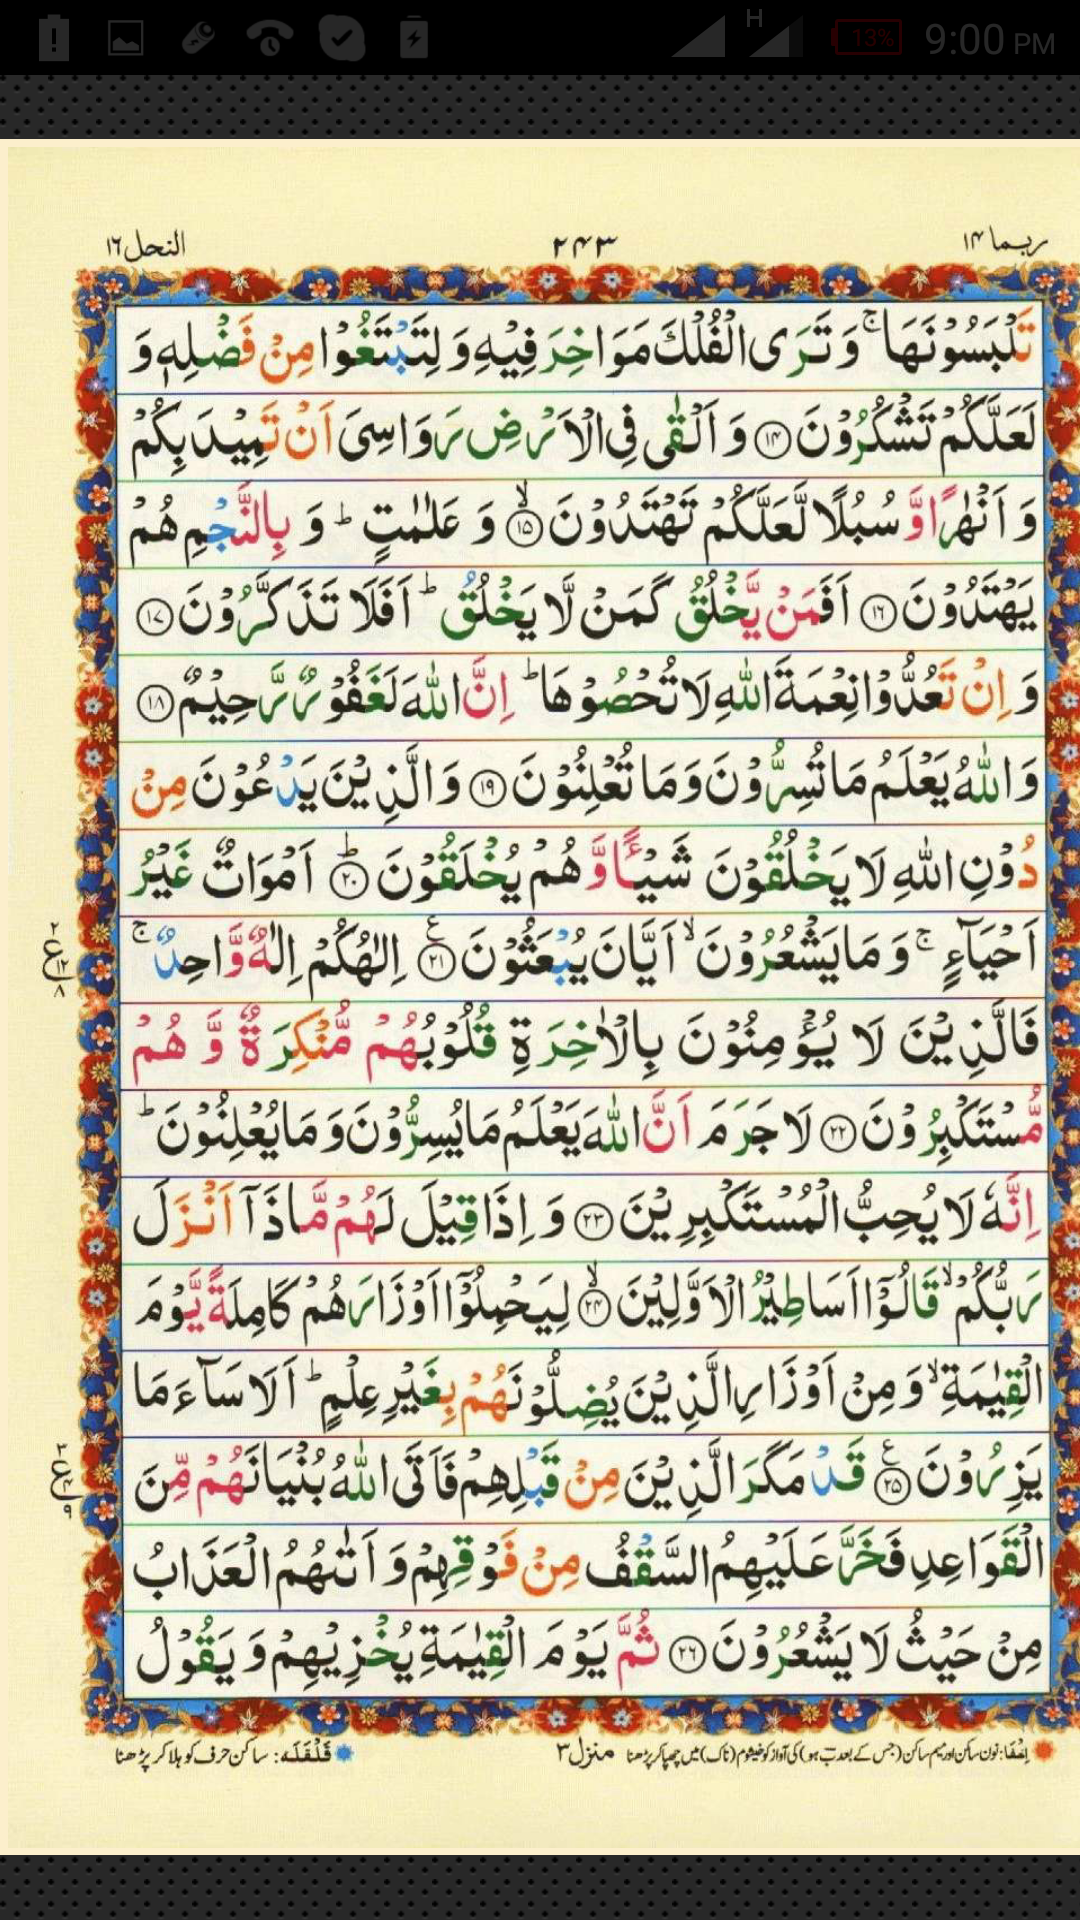 H
13%
9:00 PM
ربما ١٤
٢٤٣
النحل ١٦
تَلْبَسُوْنَهَا ۚ وَ تَرَى الْفُلْكَ مَوَاخِرَ فِيْهِ وَ لِتَبْتَغُوْا مِنْ فَضْلِهٖ وَ
لَعَلَّكُمْ تَشْكُرُوْنَ ﴿۱۴﴾ وَ اَلْقٰى فِى الْاَرْضِ رَوَاسِىَ اَنْ تَمِيْدَ بِكُمْ
وَ اَنْهٰرًا وَّ سُبُلًا لَّعَلَّكُمْ تَهْتَدُوْنَ ۙ﴿۱۵﴾ وَ عَلٰمٰتٍ ؕ وَ بِالنَّجْمِ هُمْ
يَهْتَدُوْنَ ﴿۱۶﴾ اَفَمَنْ يَّخْلُقُ كَمَنْ لَّا يَخْلُقُ ؕ اَفَلَا تَذَكَّرُوْنَ ﴿۱۷﴾
وَ اِنْ تَعُدُّوْا نِعْمَةَ اللّٰهِ لَا تُحْصُوْهَا ؕ اِنَّ اللّٰهَ لَغَفُوْرٌ رَّحِيْمٌ ﴿۱۸﴾
وَ اللّٰهُ يَعْلَمُ مَا تُسِرُّوْنَ وَ مَا تُعْلِنُوْنَ ﴿۱۹﴾ وَ الَّذِيْنَ يَدْعُوْنَ مِنْ
دُوْنِ اللّٰهِ لَا يَخْلُقُوْنَ شَيْـًٔا وَّ هُمْ يُخْلَقُوْنَ ؕ﴿۲۰﴾ اَمْوَاتٌ غَيْرُ
اَحْيَآءٍ ۚ وَ مَا يَشْعُرُوْنَ ۙ اَيَّانَ يُبْعَثُوْنَ ﴿۲۱﴾ ع اِلٰهُكُمْ اِلٰهٌ وَّاحِدٌ ۚ
٢ ع ١٢ ٨
فَالَّذِيْنَ لَا يُؤْمِنُوْنَ بِالْاٰخِرَةِ قُلُوْبُهُمْ مُّنْكِرَةٌ وَّ هُمْ
مُّسْتَكْبِرُوْنَ ﴿۲۲﴾ لَا جَرَمَ اَنَّ اللّٰهَ يَعْلَمُ مَا يُسِرُّوْنَ وَ مَا يُعْلِنُوْنَ ؕ
اِنَّهٗ لَا يُحِبُّ الْمُسْتَكْبِرِيْنَ ﴿۲۳﴾ وَ اِذَا قِيْلَ لَهُمْ مَّاذَاۤ اَنْزَلَ
رَبُّكُمْ ۙ قَالُوْۤا اَسَاطِيْرُ الْاَوَّلِيْنَ ۙ﴿۲۴﴾ لِيَحْمِلُوْۤا اَوْزَارَهُمْ كَامِلَةً يَّوْمَ
الْقِيٰمَةِ ۙ وَ مِنْ اَوْزَارِ الَّذِيْنَ يُضِلُّوْنَهُمْ بِغَيْرِ عِلْمٍ ؕ اَلَا سَآءَ مَا
يَزِرُوْنَ ﴿۲۵﴾ ع قَدْ مَكَرَ الَّذِيْنَ مِنْ قَبْلِهِمْ فَاَتَى اللّٰهُ بُنْيَانَهُمْ مِّنَ
٣ ع ٤ ٩
الْقَوَاعِدِ فَخَرَّ عَلَيْهِمُ السَّقْفُ مِنْ فَوْقِهِمْ وَ اَتٰىهُمُ الْعَذَابُ
مِنْ حَيْثُ لَا يَشْعُرُوْنَ ﴿۲۶﴾ ثُمَّ يَوْمَ الْقِيٰمَةِ يُخْزِيْهِمْ وَ يَقُوْلُ
اِخفَا: نون ساکن اور میم ساکن (جس کے بعد ب ہو) کی آواز کو خیشوم (ناک) میں چھپا کر پڑھنا منزل ٣ قَلْقَلَه: ساکن حرف کو ہلا کر پڑھنا